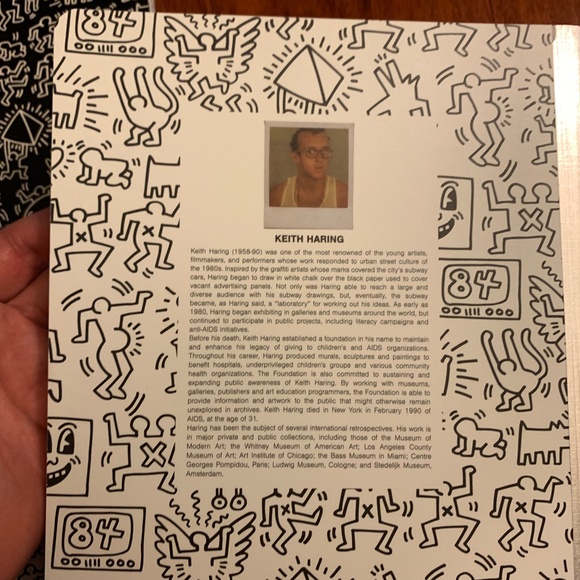 84
KEITH HARING
Keith Haring (1958-90) was one of the most renowned of the young artists,
filmmakers, and performers whose work responded to urban street culture of
the 1980s. Inspired by the graffiti artists whose marks covered the city's subway
cars, Haring began to draw in white chalk over the black paper used to cover
vacant advertising panels. Not only was Haring able to reach a large and
diverse audience with his subway drawings, but, eventually, the subway
became, as Haring said, a "laboratory" for working out his ideas. As early as
1980, Haring began exhibiting in galleries and museums around the world, but
continued to participate in public projects, including literacy campaigns and
anti-AIDS initiatives.
Before his death, Keith Haring established a foundation in his name to maintain
and enhance his legacy of giving to children's and AIDS organizations.
Throughout his career, Haring produced murals, sculptures and paintings to
benefit hospitals, underprivileged children's groups and various community
health organizations. The Foundation is also committed to sustaining and
expanding public awareness of Keith Haring. By working with museums,
galleries, publishers and art education programmes, the Foundation is able to
provide information and artwork to the public that might otherwise remain
unexplored in archives. Keith Haring died in New York in February 1990 of
AIDS, at the age of 31.
Haring has been the subject of several international retrospectives. His work is
in major private and public collections, including those of the Museum of
Modern Art; the Whitney Museum of American Art; Los Angeles County
Museum of Art; Art Institute of Chicago; the Bass Museum in Miami; Centre
Georges Pompidou, Paris; Ludwig Museum, Cologne; and Stedelijk Museum,
Amsterdam.
84
84